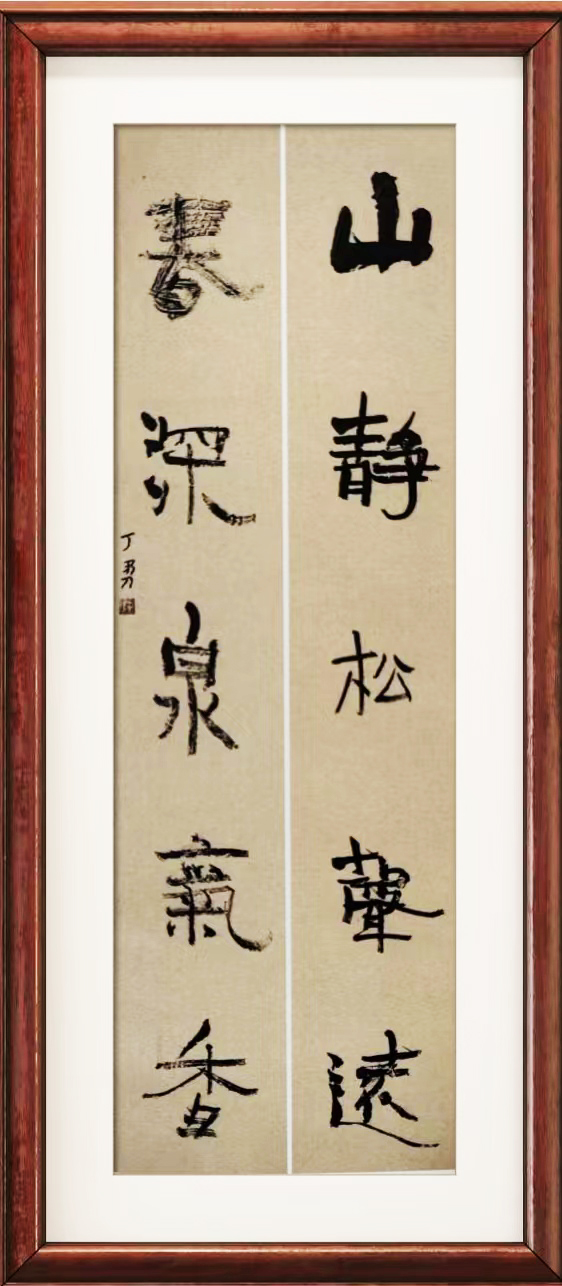 山靜松聲遠
書深泉氣香
丁勇